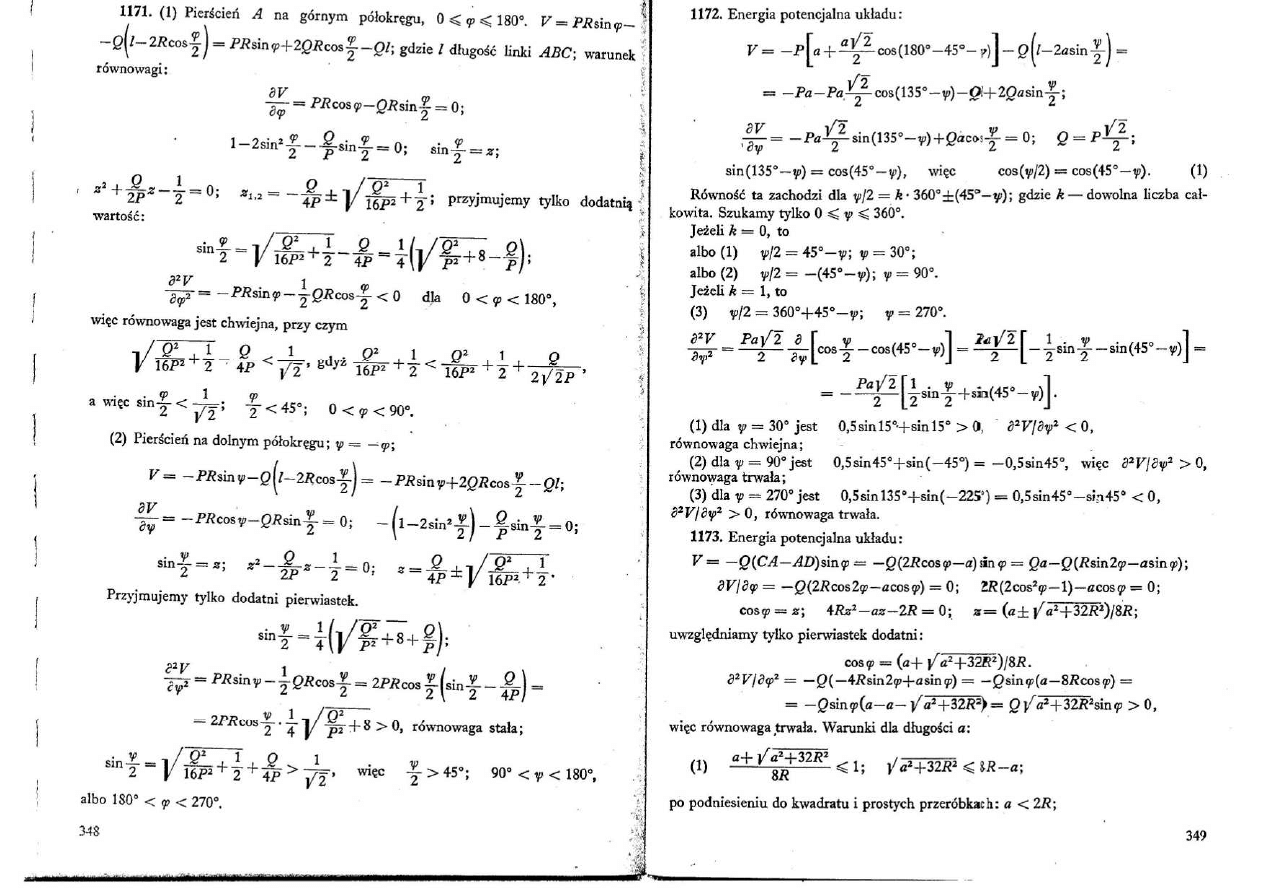 1171. (1) Pierścień A na górnym półokręgu, 0 ⩽ φ ⩽ 180°. V = PRsin φ−
−Q(l−2Rcos φ/2) = PRsin φ+2QRcos φ/2−Ql; gdzie l długość linki ABC; warunek
równowagi:
∂V/∂φ = PRcos φ−QRsin φ/2 = 0;
1−2sin² φ/2 − Q/P sin φ/2 = 0; sin φ/2 = z;
z² + Q/2P z − 1/2 = 0; z₁,₂ = − Q/4P ± √(Q²/16P² + 1/2); przyjmujemy tylko dodatnią
wartość:
sin φ/2 = √(Q²/16P² + 1/2) − Q/4P = 1/4(√(Q²/P² + 8) − Q/P);
∂²V/∂φ² = −PRsin φ − 1/2 QRcos φ/2 < 0 dla 0 < φ < 180°,
więc równowaga jest chwiejna, przy czym
√(Q²/16P² + 1/2) − Q/4P < 1/√2, gdyż Q²/16P² + 1/2 < Q²/16P² + 1/2 + Q/2√2P,
a więc sin φ/2 < 1/√2; φ/2 < 45°; 0 < φ < 90°.
(2) Pierścień na dolnym półokręgu; ψ = −φ;
V = −PRsin ψ−Q(l−2Rcos ψ/2) = −PRsin ψ+2QRcos ψ/2 −Ql;
∂V/∂ψ = −PRcos ψ−QRsin ψ/2 = 0; −(1−2sin² ψ/2) − Q/P sin ψ/2 = 0;
sin ψ/2 = z; z² − Q/2P z − 1/2 = 0; z = Q/4P ± √(Q²/16P² + 1/2).
Przyjmujemy tylko dodatni pierwiastek.
sin ψ/2 = 1/4(√(Q²/P² + 8) + Q/P);
∂²V/∂ψ² = PRsin ψ − 1/2 QRcos ψ/2 = 2PRcos ψ/2 (sin ψ/2 − Q/4P) =
= 2PRcos ψ/2 · 1/4 √(Q²/P² + 8) > 0, równowaga stała;
sin ψ/2 = √(Q²/16P² + 1/2) + Q/4P > 1/√2, więc ψ/2 > 45°; 90° < ψ < 180°,
albo 180° < φ < 270°.
348
1172. Energia potencjalna układu:
V = −P[a + a√2/2 cos(180°−45°−ψ)] − Q(l−2asin ψ/2) =
= −Pa−Pa √2/2 cos(135°−ψ)−Ql+2Qasin ψ/2;
∂V/∂ψ = −Pa √2/2 sin(135°−ψ)+Qacos ψ/2 = 0; Q = P √2/2;
sin(135°−ψ) = cos(45°−ψ), więc cos(ψ/2) = cos(45°−ψ). (1)
Równość ta zachodzi dla ψ/2 = k· 360°±(45°−ψ); gdzie k — dowolna liczba cał-
kowita. Szukamy tylko 0 ⩽ ψ ⩽ 360°.
Jeżeli k = 0, to
albo (1) ψ/2 = 45°−ψ; ψ = 30°;
albo (2) ψ/2 = −(45°−ψ); ψ = 90°.
Jeżeli k = 1, to
(3) ψ/2 = 360°+45°−ψ; ψ = 270°.
∂²V/∂ψ² = Pa√2/2 ∂/∂ψ [cos ψ/2 −cos(45°−ψ)] = Pa√2/2 [− 1/2 sin ψ/2 −sin(45°−ψ)] =
= − Pa√2/2 [1/2 sin ψ/2 +sin(45°−ψ)].
(1) dla ψ = 30° jest 0,5sin15°+sin15° > 0, ∂²V/∂ψ² < 0,
równowaga chwiejna;
(2) dla ψ = 90° jest 0,5sin45°+sin(−45°) = −0,5sin45°, więc ∂²V/∂ψ² > 0,
równowaga trwała;
(3) dla ψ = 270° jest 0,5sin135°+sin(−225°) = 0,5sin45°−sin45° < 0,
∂²V/∂ψ² > 0, równowaga trwała.
1173. Energia potencjalna układu:
V = −Q(CA−AD)sin φ = −Q(2Rcos φ−a) sin φ = Qa−Q(Rsin2φ−asin φ);
∂V/∂φ = −Q(2Rcos2φ−acos φ) = 0; 2R(2cos²φ−1)−acos φ = 0;
cos φ = z; 4Rz²−az−2R = 0; z = (a±√(a²+32R²))/8R;
uwzględniamy tylko pierwiastek dodatni:
cos φ = (a+√(a²+32R²))/8R.
∂²V/∂φ² = −Q(−4Rsin2φ+asin φ) = −Qsin φ(a−8Rcos φ) =
= −Qsin φ(a−a−√(a²+32R²)) = Q√(a²+32R²)sin φ > 0,
więc równowaga trwała. Warunki dla długości a:
(1) (a+√(a²+32R²))/8R ⩽ 1; √(a²+32R²) ⩽ 8R−a;
po podniesieniu do kwadratu i prostych przeróbkach: a < 2R;
349